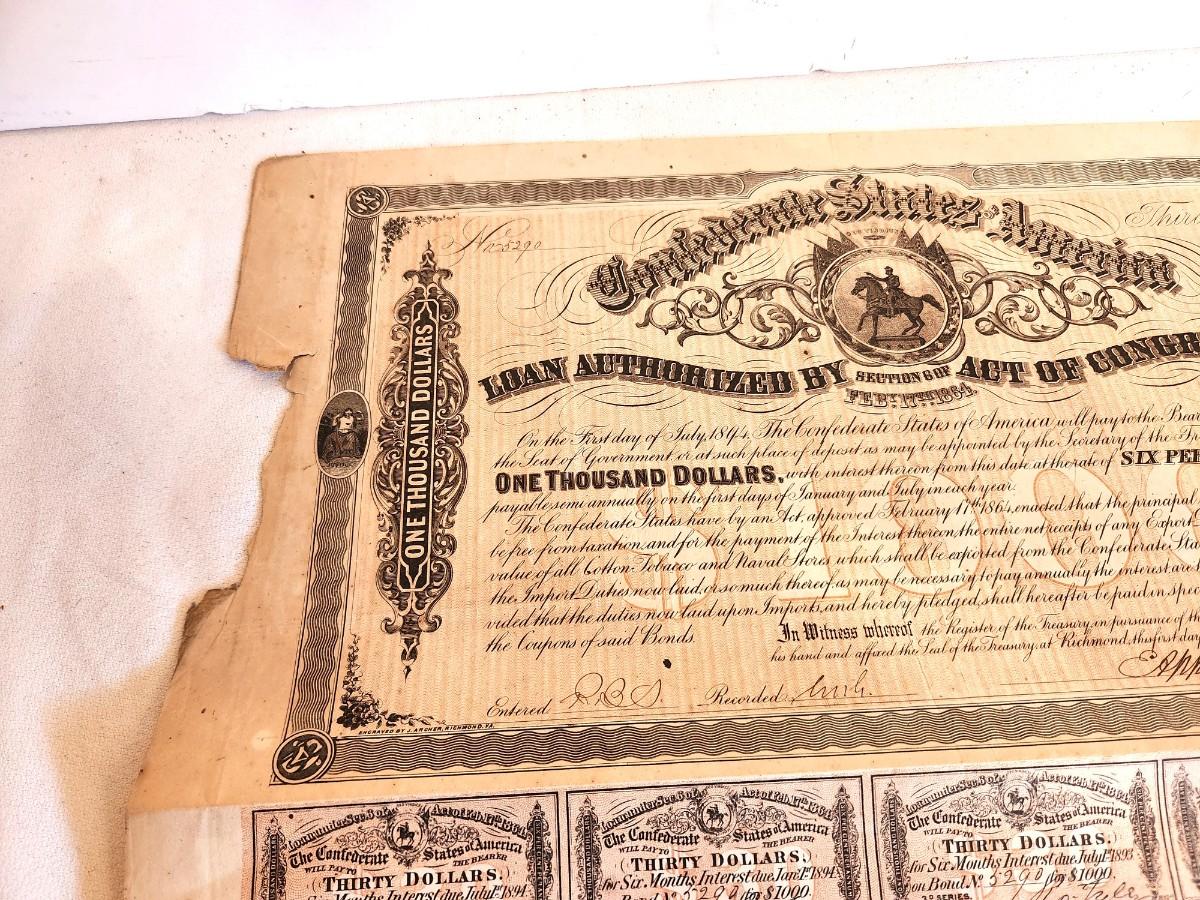 No. 5290
Confederate States of America
Thir
DEO VINDICE
LOAN AUTHORIZED BY SECTION 6 OF ACT OF CONGR
FEBY. 17TH 1864.
ONE THOUSAND DOLLARS
On the First day of July, 1894, The Confederate States of America will pay to the Bear
the Seat of Government or at such place of deposit as may be appointed by the Secretary of the Tr
ONE THOUSAND DOLLARS, with interest thereon from this date at the rate of SIX PER
payable semi annually on the first days of January and July in each year.
The Confederate States have by an Act, approved February 17th 1864, enacted that the principal
be free from taxation, and for the payment of the Interest thereon, the entire net receipts of any Export
value of all Cotton Tobacco and Naval Stores, which shall be exported from the Confederate Sta
the Import Duties now laid, or so much thereof, as may be necessary to pay annually the interest are
vided that the duties now laid upon Imports, and hereby pledged, shall hereafter be paid in spe
the Coupons of said Bonds.
In Witness whereof the Register of the Treasury, in pursuance of th
his hand and affixed the Seal of the Treasury, at Richmond, this first day
Entered R.B.S. Recorded
ENGRAVED BY J. ARCHER, RICHMOND, VA.
Loan under Sec. 6 of Act of Feb. 17th 1864
The Confederate States of America
WILL PAY TO THE BEARER
THIRTY DOLLARS,
Six Months Interest due July 1st 1894.
Loan under Sec. 6 of Act of Feb. 17th 1864
The Confederate States of America
WILL PAY TO THE BEARER
THIRTY DOLLARS,
for Six Months Interest due Jany. 1st 1894
Bond No. 5290 for $1000.
Loan under Sec. 6 of Act of Feb. 17th 1864
The Confederate States of America
WILL PAY TO THE BEARER
THIRTY DOLLARS,
for Six Months Interest due July 1st 1893
on Bond No. 5290 for $1000.
3D SERIES.